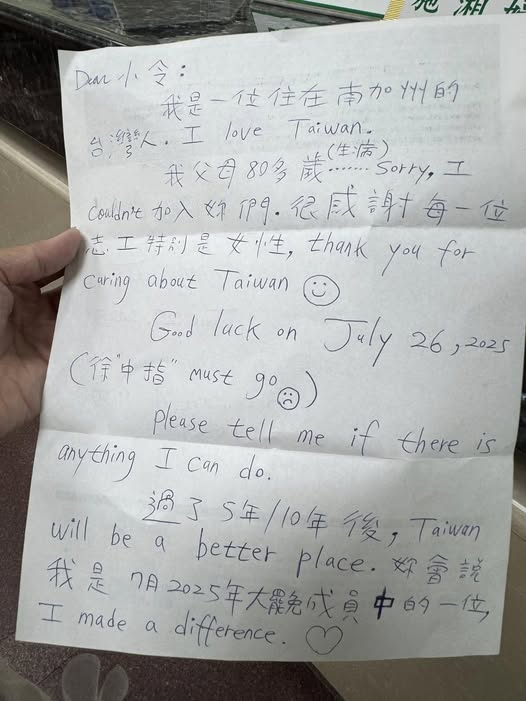 Dear 小令：
我是一位住在南加州的
台灣人. I love Taiwan.
我父母80多歲(生病)...... Sorry, I
couldn't 加入妳們. 很感謝每一位
志工特別是女性, thank you for
caring about Taiwan ☺
Good luck on July 26, 2025
(徐"中指" must go ☹)
please tell me if there is
anything I can do.
過了5年/10年後, Taiwan
will be a better place. 妳會說
我是 7月2025年大罷免成員中的一位,
I made a difference. ♡